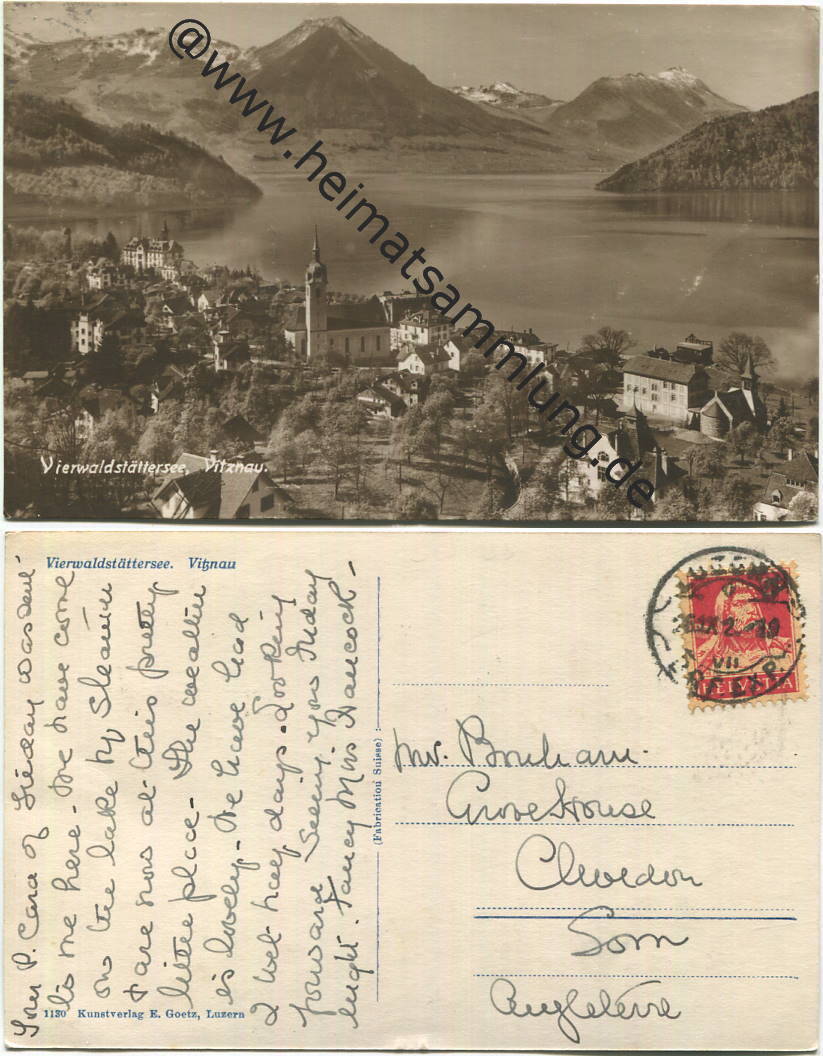 @www.heimatsammlung.de
Vierwaldstättersee, Vitznau.
Vierwaldstättersee. Vitznau
Your P. Card of Friday was sent
to me here - We have come
on the lake by Steamer
& are now at this pretty
little place - The weather
is lovely - We have had
2 wet half days - Looking
forward seeing you Friday
night. Fancy Miss Hancock -
1130 Kunstverlag E. Goetz, Luzern
(Fabrication Suisse)
HELVETIA
Grove House
Clevedon
Som
Angleterre